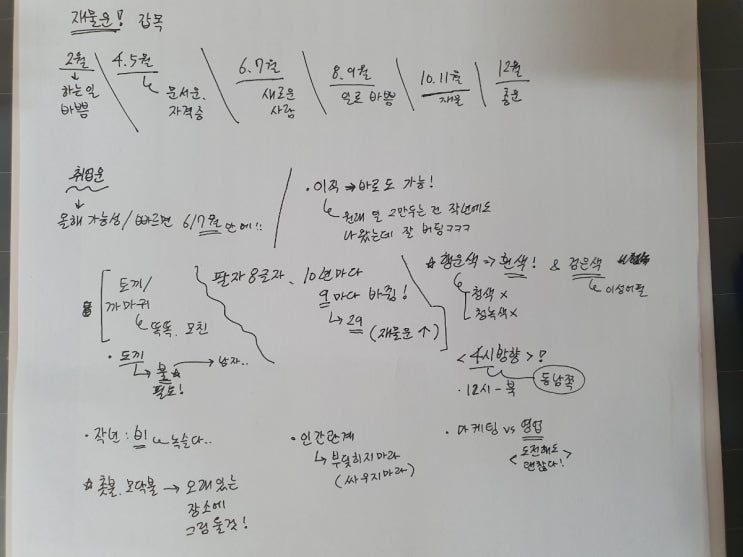 재물운! 갑목
2월
↓
하는일
바쁨
4.5월
문서운.
자격증
6.7월
새로운
사람
8.9월
일로 바쁨
10.11월
재물
12월
좋은
취업운
↓
올해 가능성/빠르면 6/7월 안에!!
· 이직 ⇒ 바로도 가능!
원래 일 그만두는 건 작년에도
나왔는데 잘 버팀ㅋㅋㅋ
토끼/
까마귀
똑똑. 모친
· 토끼
불☆ → 남자..
필요!
팔자 8글자. 10년마다
9마다 바뀜!
↳ 29 (재물운 ↑)
☆ 행운색 ⇒ 흰색! & 검은색
이성어필
청색 ×
청녹색 ×
<4시방향>!
동남쪽
· 12시 - 북
· 작년 : 비 녹슬다..
☆ 촛불. 모닥불 → 오래 있는
장소에
그림 둘것!
· 인간관계
↳ 부딪히지마라
(싸우지마라)
· 마케팅 vs 영업
<도전해도
괜찮다!>